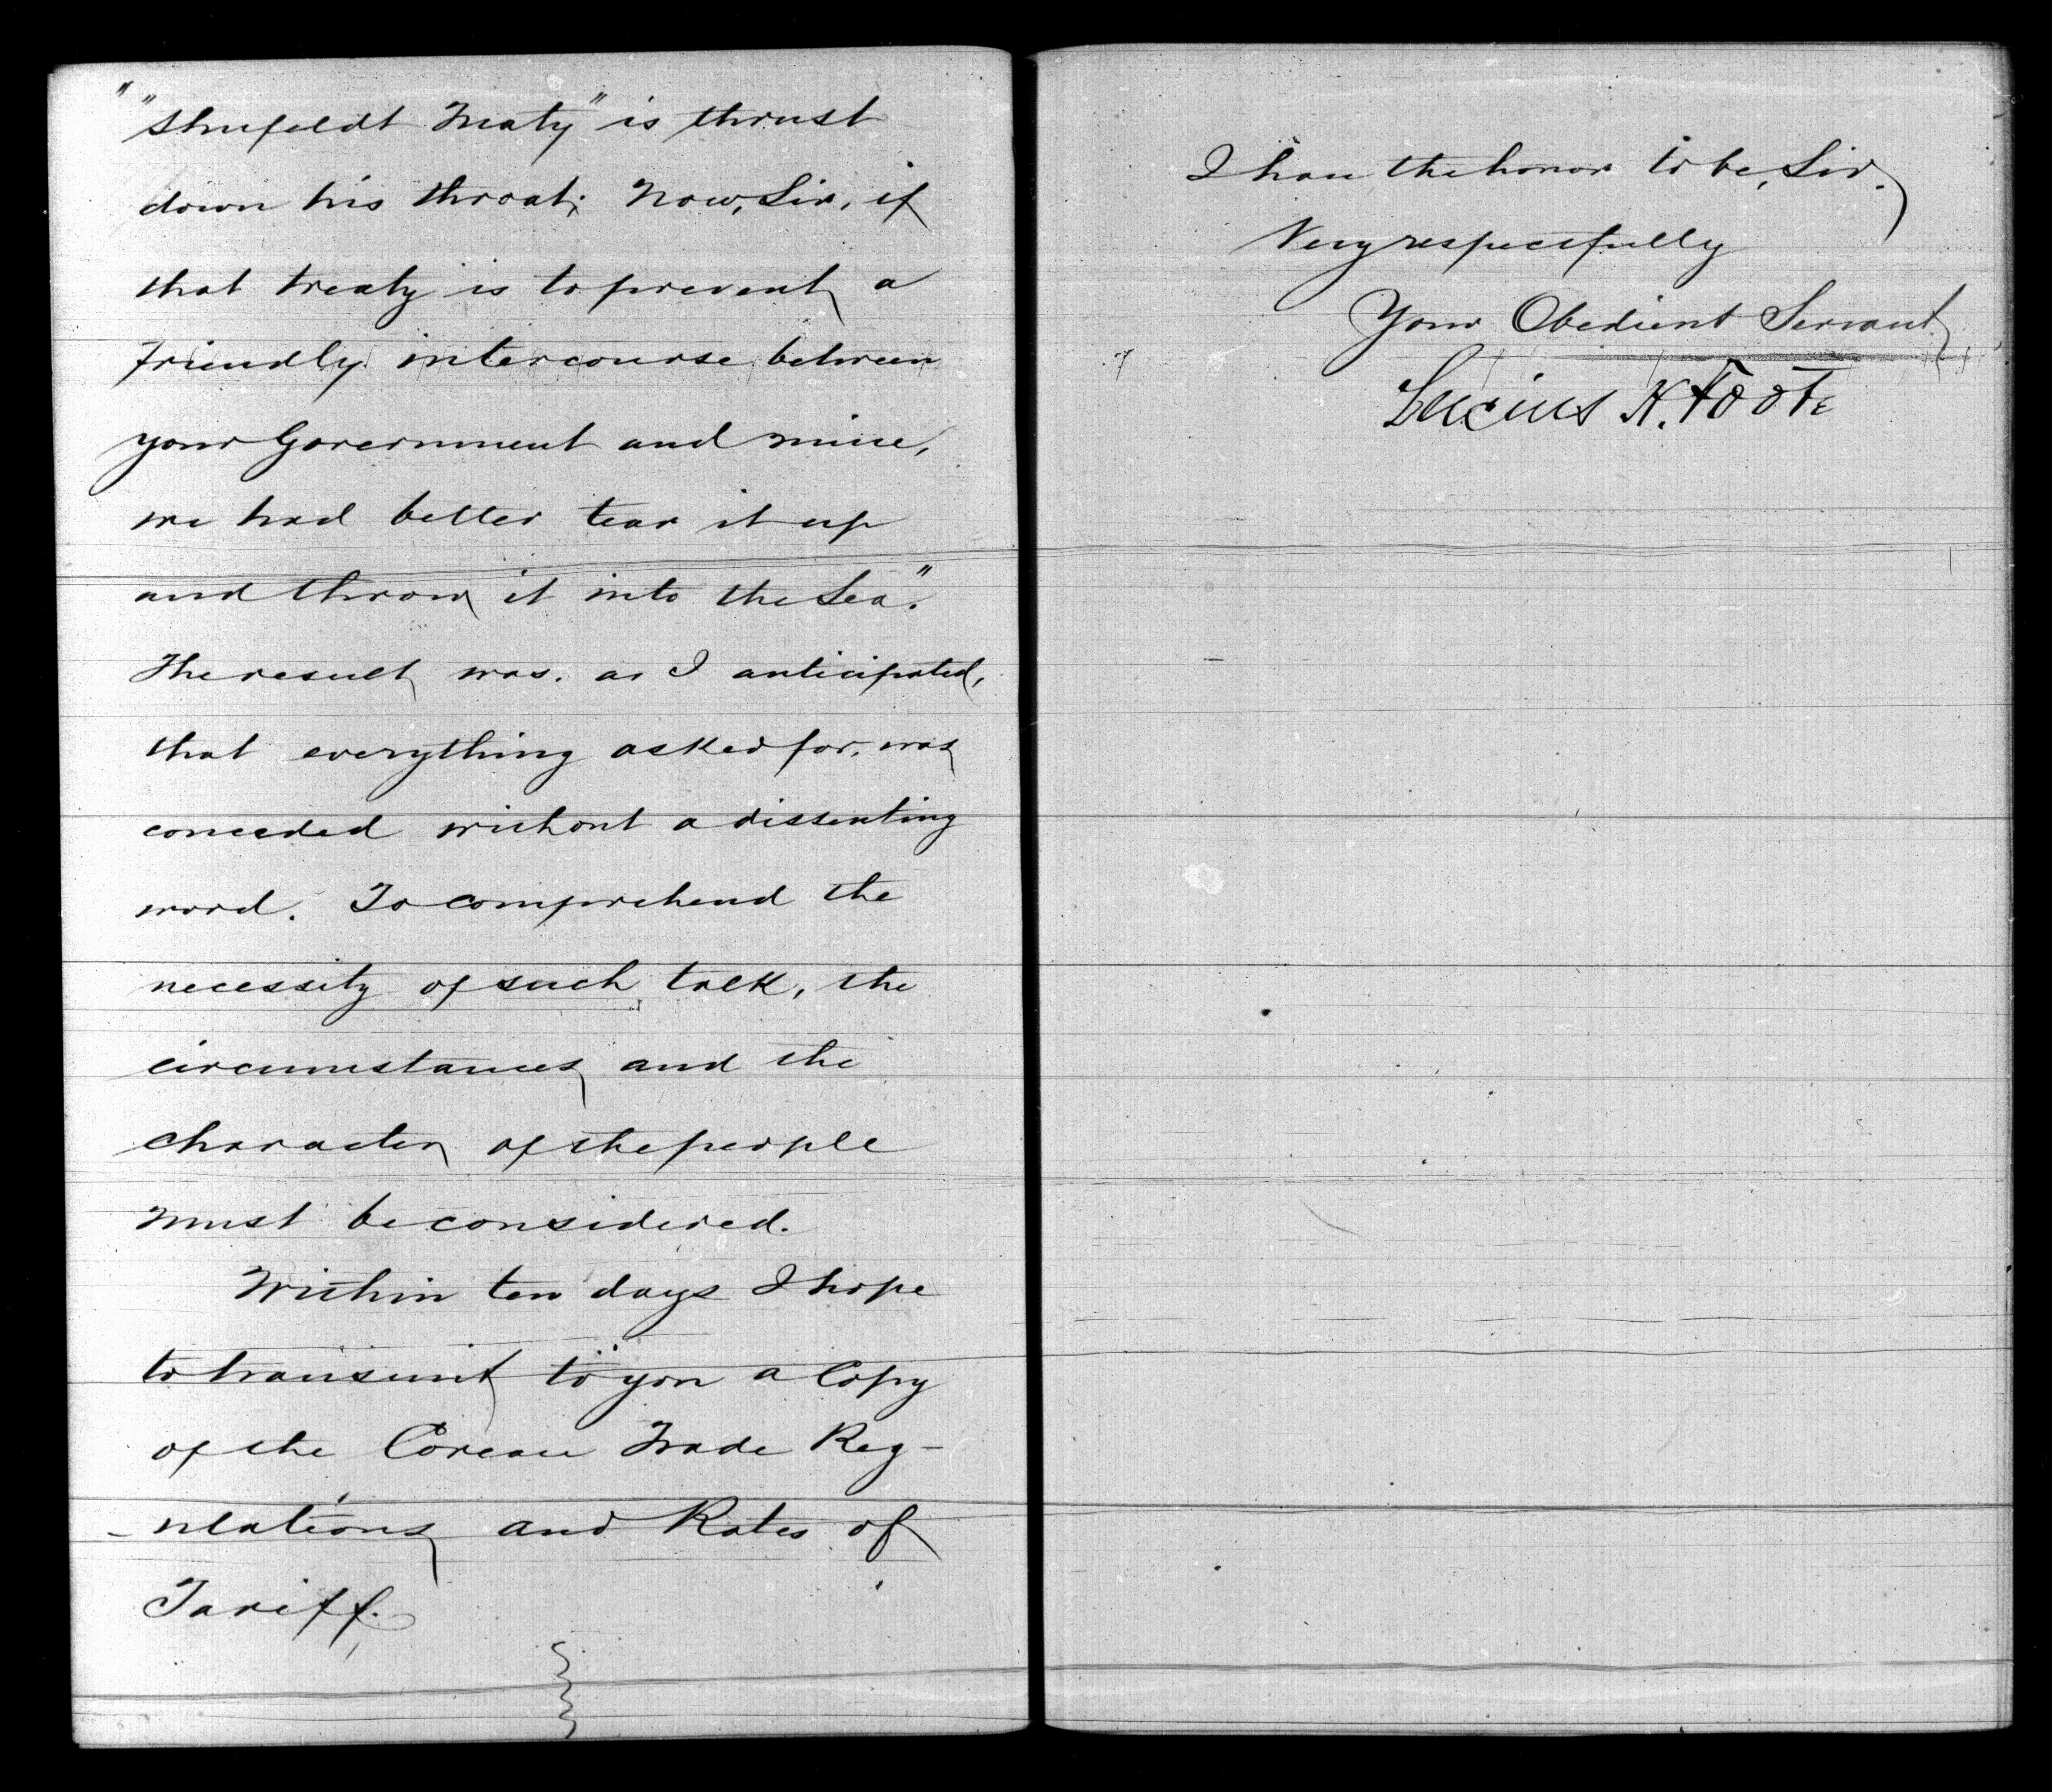 " "Shufeldt Treaty" is thrust
down his throat; Now, Sir, if
that treaty is to prevent a
friendly intercourse between
your Government and mine,
we had better tear it up
and throw it into the Sea."
The result was, as I anticipated,
that everything asked for, was
conceded without a dissenting
word. To comprehend the
necessity of such talk, the
circumstances and the
character of the people
must be considered.
Within ten days I hope
to transmit to you a Copy
of the Corean Trade Reg-
-ulations and Rates of
Tariff.
I have the honor to be, Sir,
Very respectfully
Your Obedient Servant
Lucius H. Foote